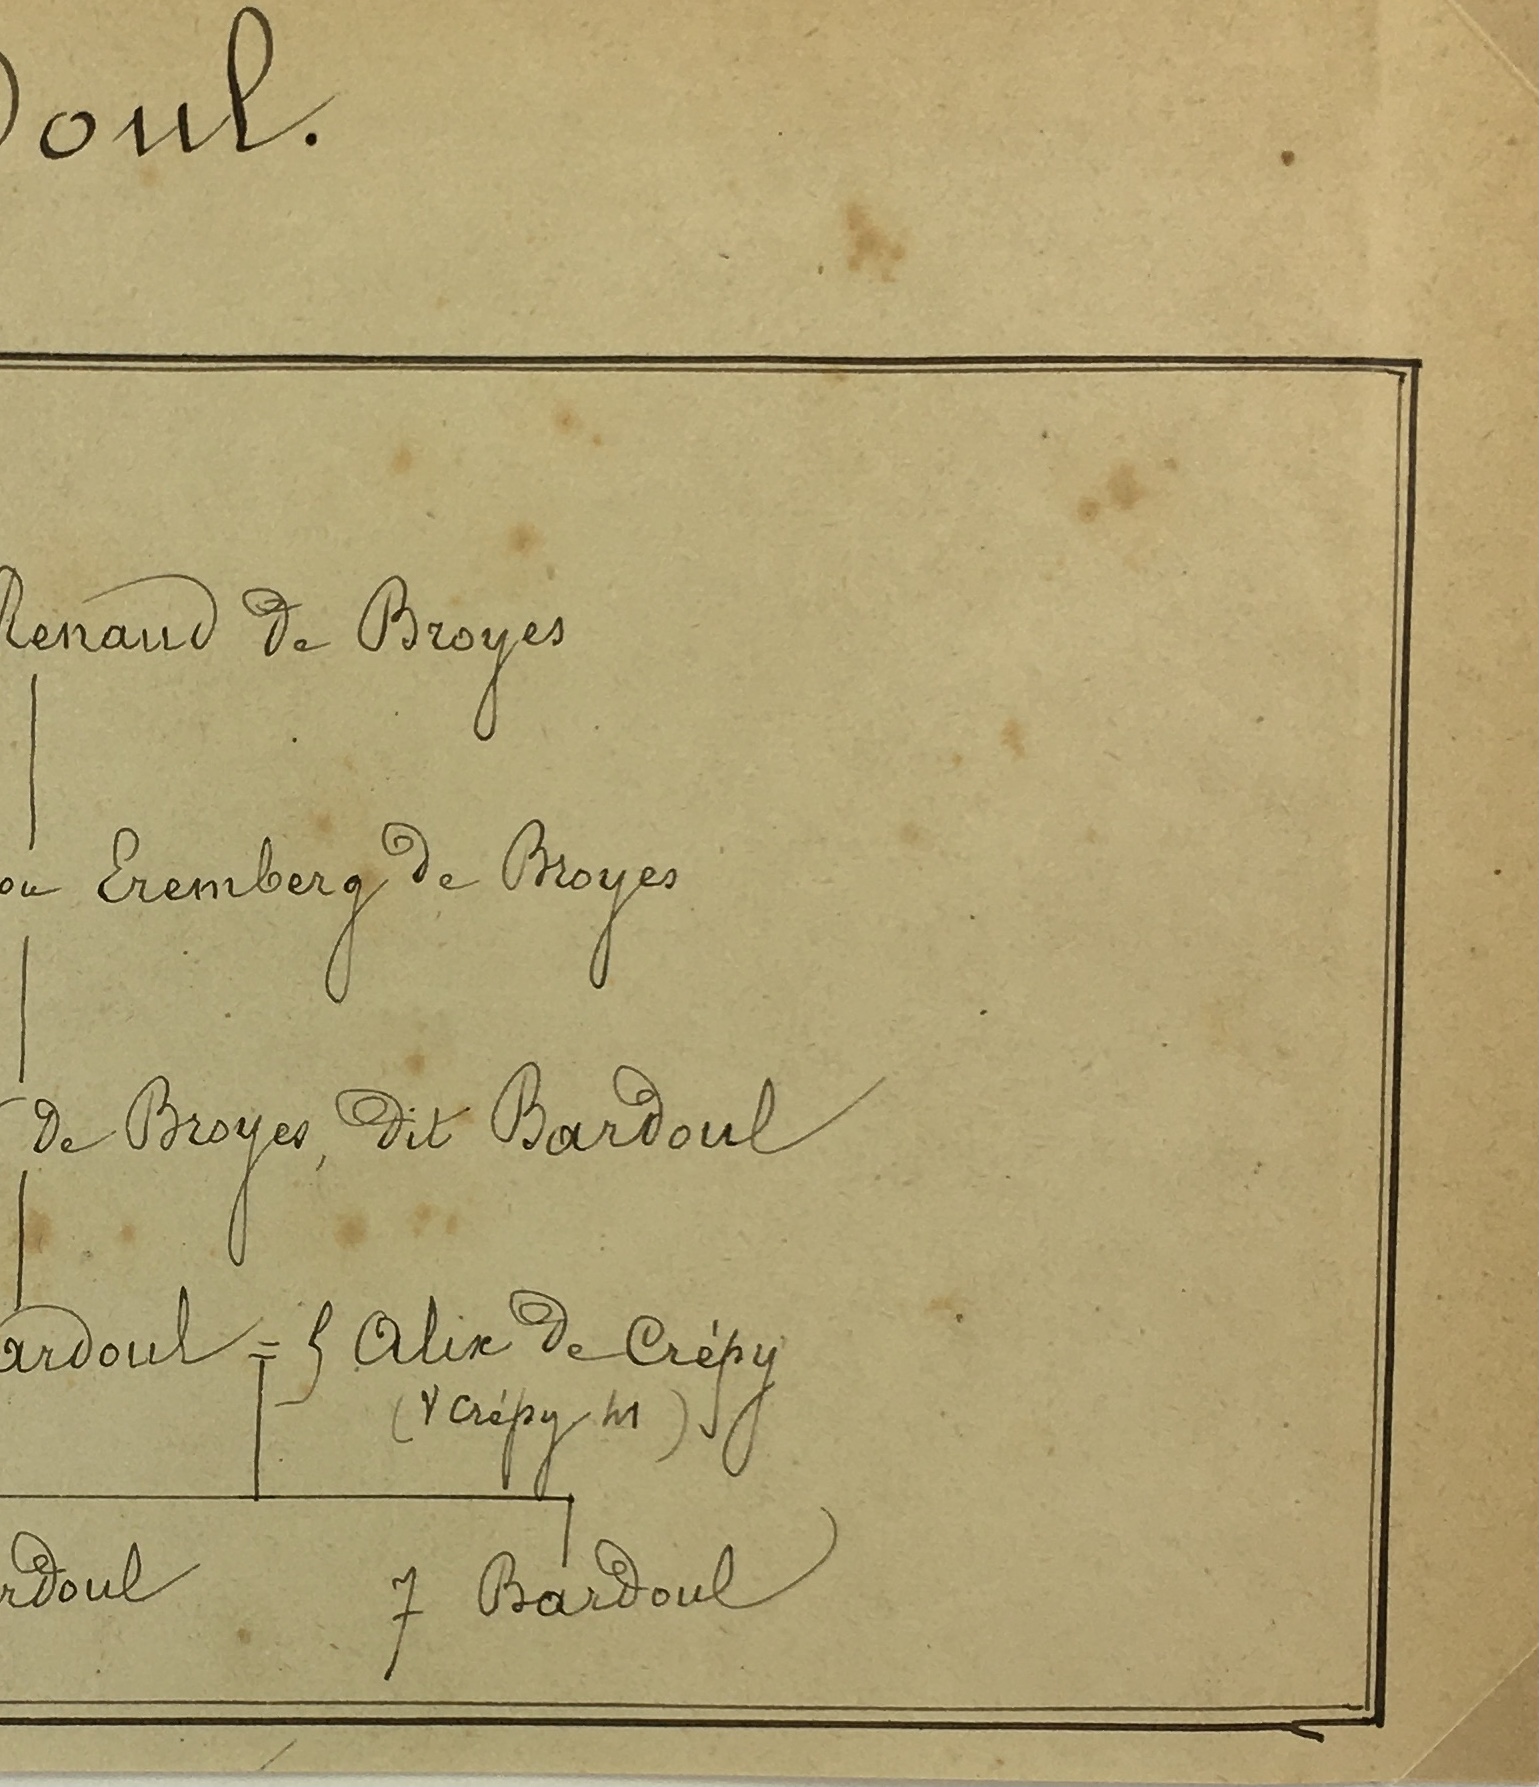 Doul.
Renaud de Broyes
ou Eremberg de Broyes
de Broyes, dit Bardoul
ardoul = { Alix de Crépy
(V Crépy       )
rdoul 7 Bardoul